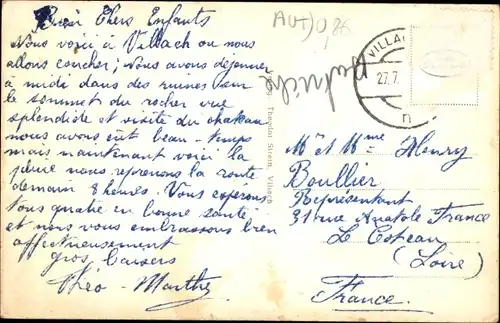 Bien Chers Enfants
Nous voici à Villach ou nous
allons coucher; Nous avons déjeuner
à midi dans des ruines sur
le sommet du rocher vue
splendide et visite du chateau
nous avons eut beau-temps
mais maintenant voici la
pluie nous reprenons la route
demain 8 heures. Vous espérons
tous quatre en bonne santé
et nous vous embrassons bien
affectueusement
gros baisers
Théo - Marthe
AUT) 0,86
Autriche
VILLA
27.7.
Theodor Strein, Villach
Mr et Mme Henry
Boullier
Représentant
31 rue Anatole France
Le Coteau
(Loire)
France.